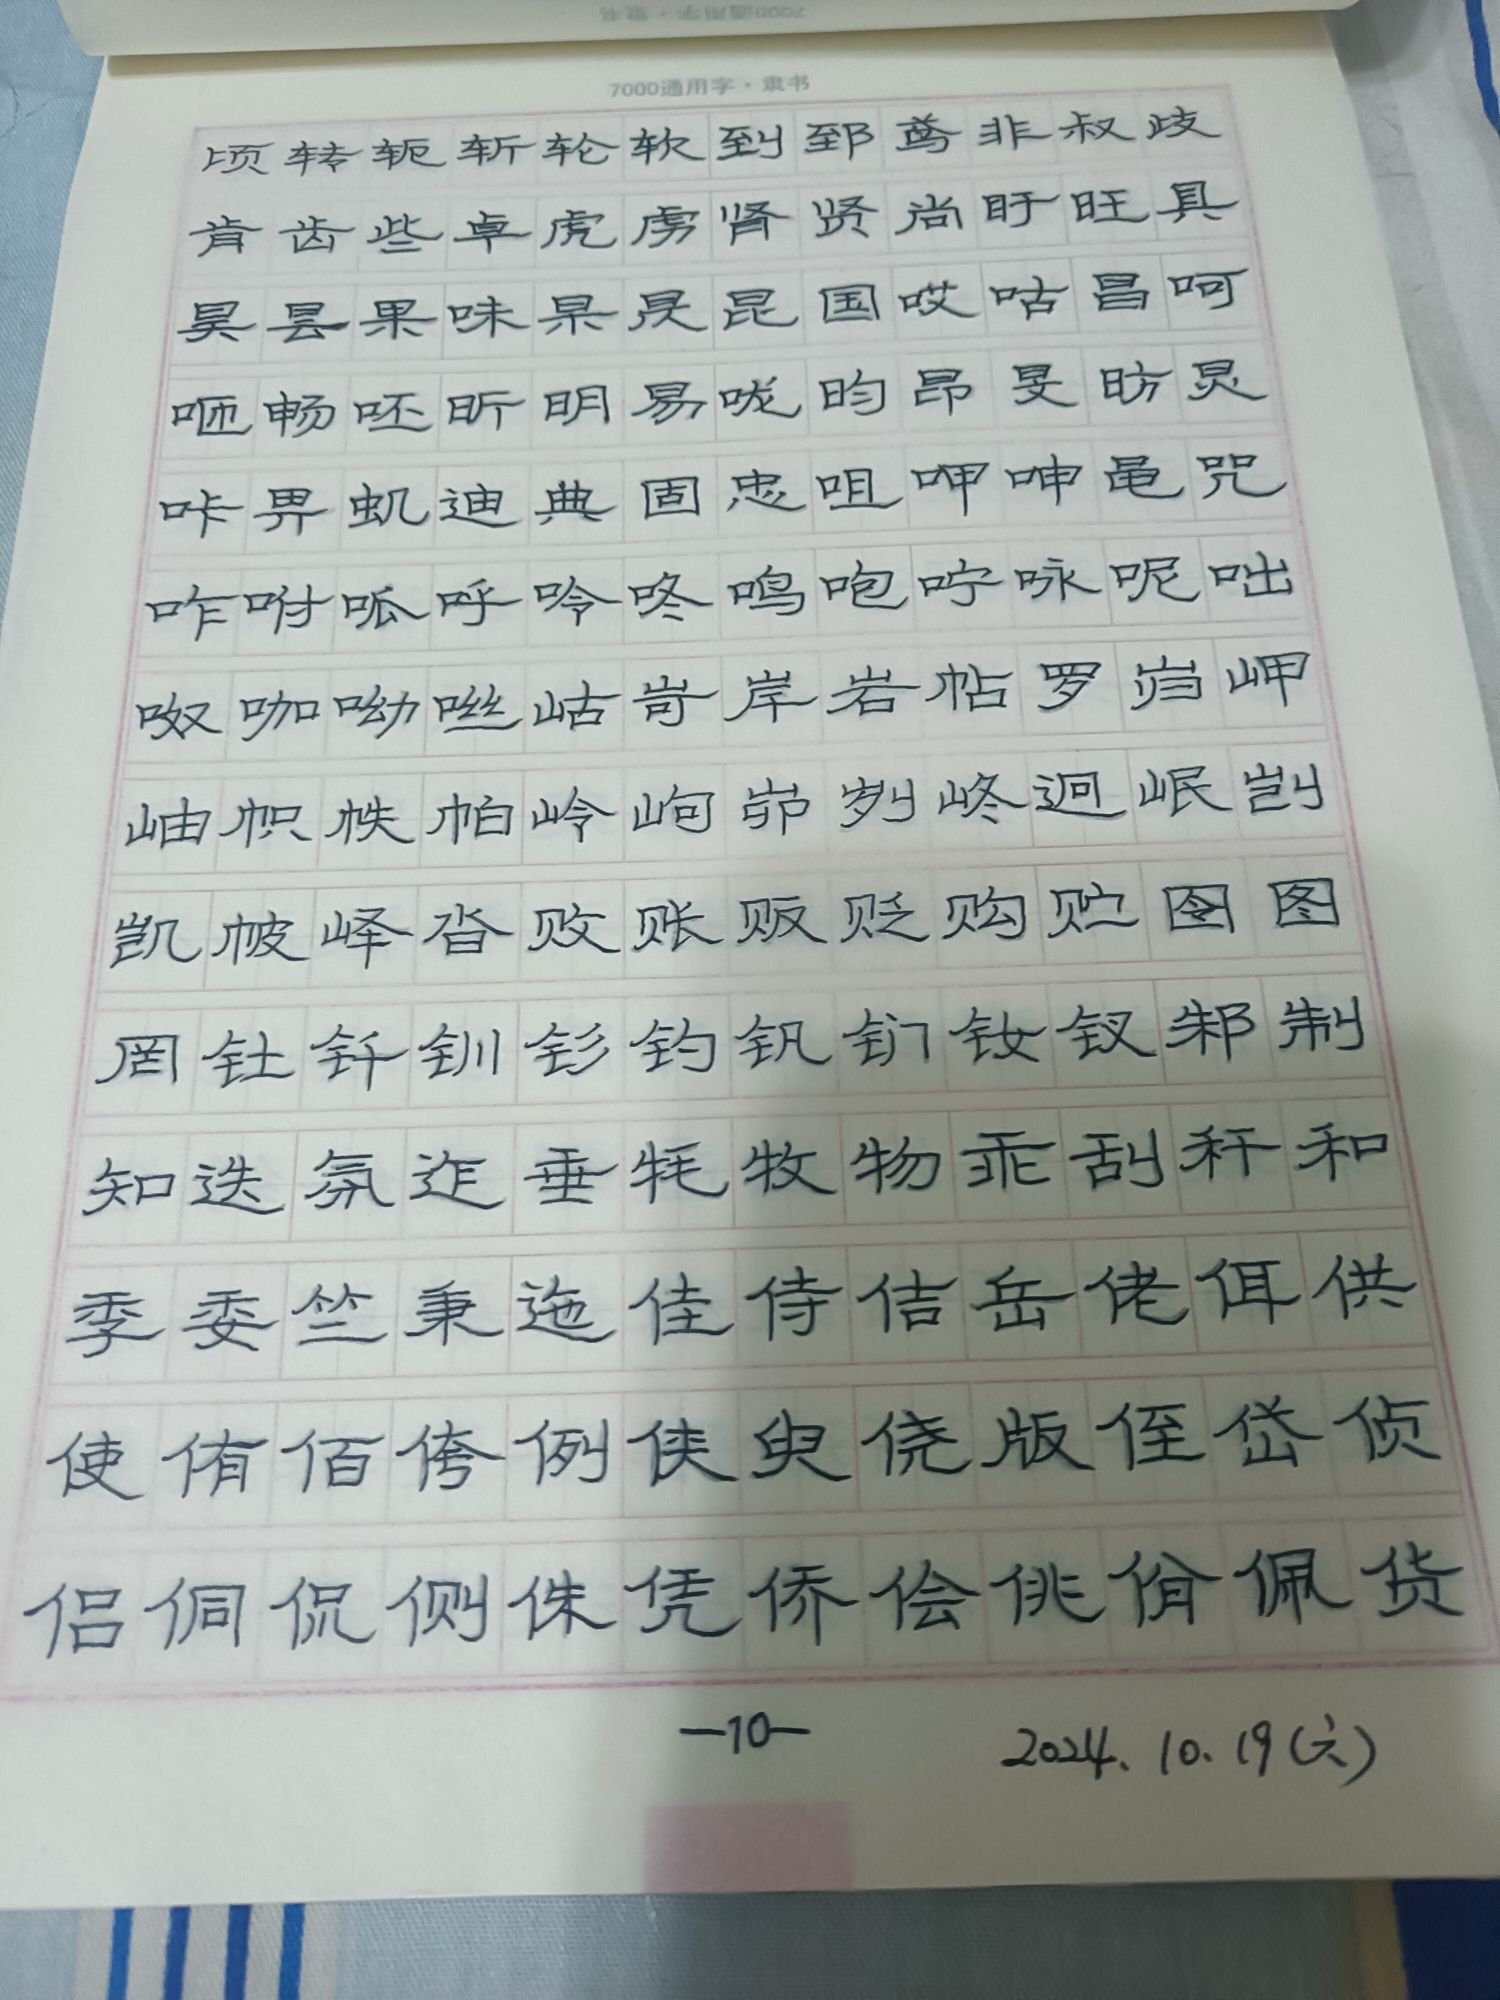 7000通用字·隶书
7000通用字·隶书
顷转轭斩轮软到郅鸢非叔歧
肯齿些卓虎虏肾贤尚盱旺具
昊昙果味杲昃昆国哎咕昌呵
咂畅呸昕明易咙昀昂旻昉炅
咔畀虮迪典固忠咀呷呻黾咒
咋咐呱呼呤咚鸣咆咛咏呢咄
呶咖呦咝岵岢岸岩帖罗岿岬
岫帜帙帕岭岣峁刿峂迥岷剀
凯帔峄沓败账贩贬购贮囹图
罔钍钎钏钐钓钒钔钕钗邾制
知迭氛迮垂牦牧物乖刮秆和
季委竺秉迤佳侍佶岳佬佴供
使侑佰侉例侠臾侥版侄岱侦
侣侗侃侧侏凭侨侩佻佾佩货
—10—
2024.10.19(六)